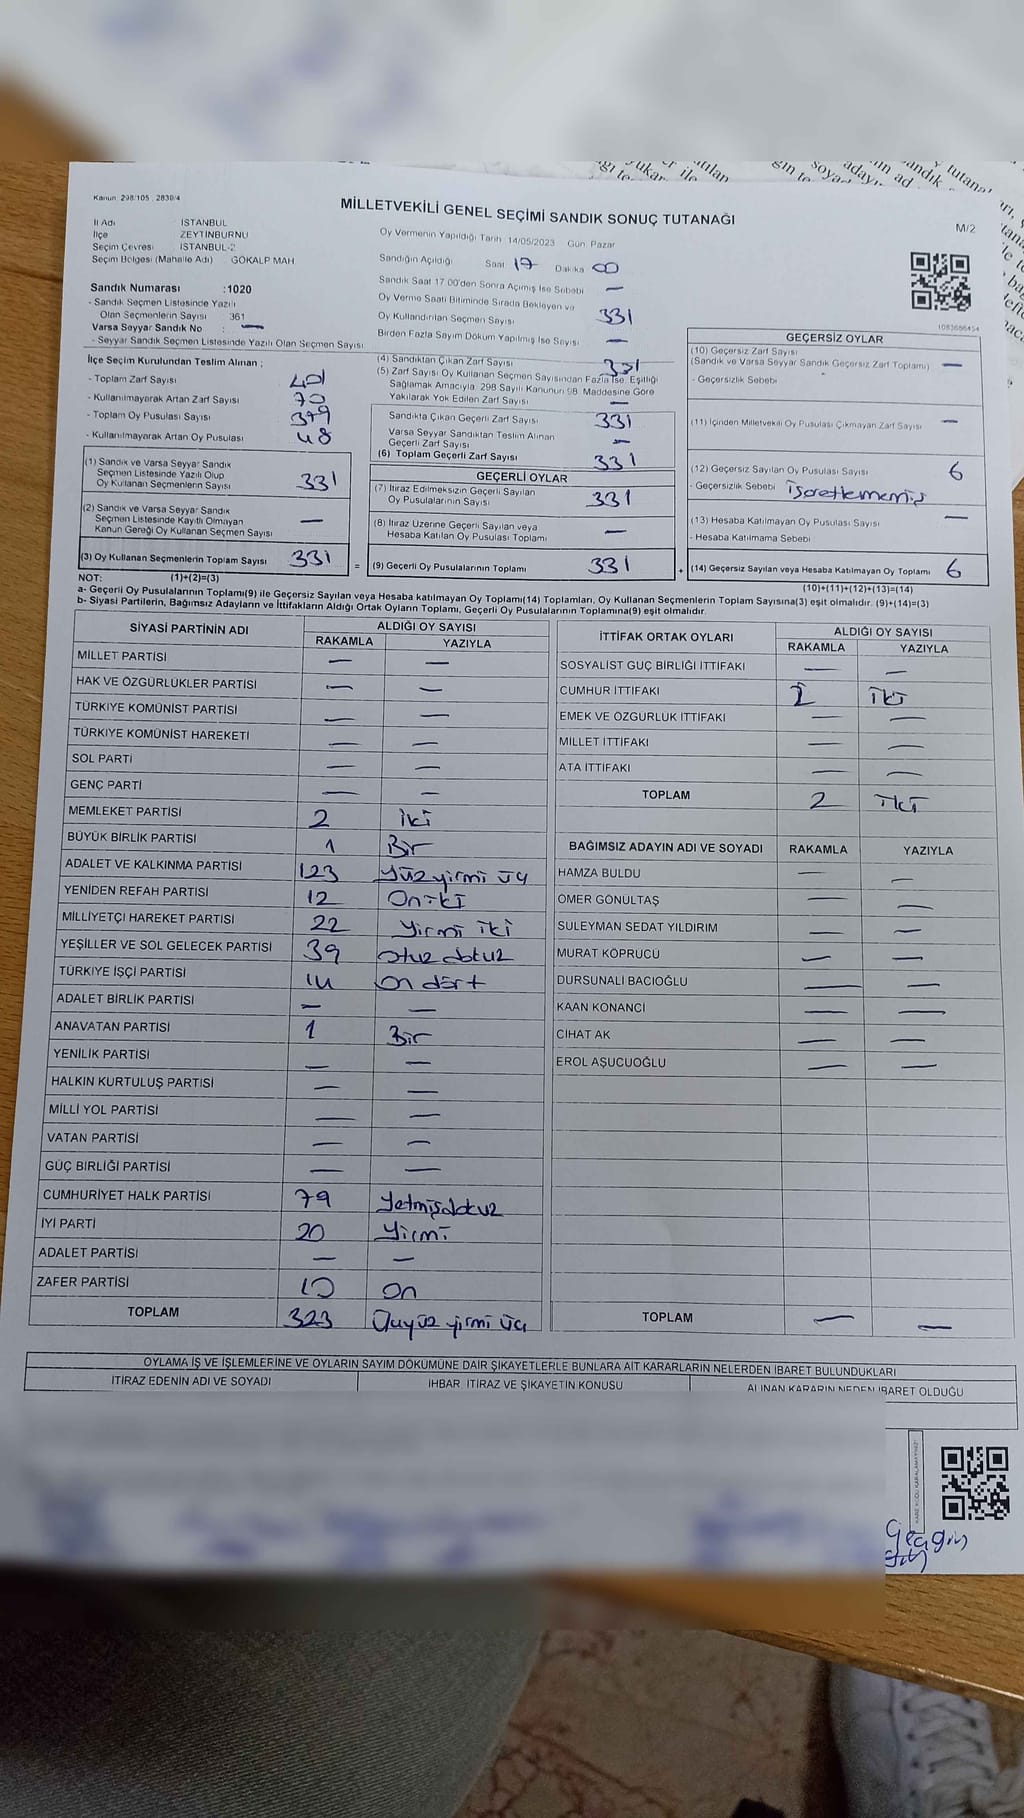 Kanun 298/105 , 2839/4
MİLLETVEKİLİ GENEL SEÇİMİ SANDIK SONUÇ TUTANAĞI
M/2
İl Adı : İSTANBUL
İlçe : ZEYTİNBURNU
Seçim Çevresi : İSTANBUL-2
Seçim Bölgesi (Mahalle Adı) : GÖKALP MAH
Oy Vermenin Yapıldığı Tarih 14/05/2023 Gün Pazar
Sandığın Açıldığı Saat 17 Dakika 00
Sandık Saat 17 00'den Sonra Açımış İse Sebebi —
Oy Verme Saati Bitiminde Sırada Bekleyen ve
Oy Kullandırılan Seçmen Sayısı 331
Birden Fazla Sayım Döküm Yapılmış İse Sayısı —
Sandık Numarası :1020
- Sandık Seçmen Listesinde Yazılı
Olan Seçmenlerin Sayısı 361
Varsa Seyyar Sandık No : —
- Seyyar Sandık Seçmen Listesinde Yazılı Olan Seçmen Sayısı
İlçe Seçim Kurulundan Teslim Alınan ;
- Toplam Zarf Sayısı 401
- Kullanılmayarak Artan Zarf Sayısı 70
- Toplam Oy Pusulası Sayısı 379
- Kullanılmayarak Artan Oy Pusulası 48
(1) Sandık ve Varsa Seyyar Sandık
Seçmen Listesinde Yazılı Olup
Oy Kullanan Seçmenlerin Sayısı 331
(2) Sandık ve Varsa Seyyar Sandık
Seçmen Listesinde Kayıtlı Olmayan
Kanun Gereği Oy Kullanan Seçmen Sayısı —
(3) Oy Kullanan Seçmenlerin Toplam Sayısı 331 =
(4) Sandıktan Çıkan Zarf Sayısı 331
(5) Zarf Sayısı Oy Kullanan Seçmen Sayısından Fazla İse, Eşitliği
Sağlamak Amacıyla, 298 Sayılı Kanunun 98. Maddesine Göre
Yakılarak Yok Edilen Zarf Sayısı —
Sandıkta Çıkan Geçerli Zarf Sayısı 331
Varsa Seyyar Sandıktan Teslim Alınan
Geçerli Zarf Sayısı —
(6) Toplam Geçerli Zarf Sayısı 331
GEÇERLİ OYLAR
(7) İtiraz Edilmeksizin Geçerli Sayılan
Oy Pusulalarının Sayısı 331
(8) İtiraz Üzerine Geçerli Sayılan veya
Hesaba Katılan Oy Pusulası Toplamı —
(9) Geçerli Oy Pusulalarının Toplamı 331 +
1083686454
GEÇERSİZ OYLAR
(10) Geçersiz Zarf Sayısı
(Sandık ve Varsa Seyyar Sandık Geçersiz Zarf Toplamı) —
- Geçersizlik Sebebi
(11) İçinden Milletvekili Oy Pusulası Çıkmayan Zarf Sayısı —
(12) Geçersiz Sayılan Oy Pusulası Sayısı 6
- Geçersizlik Sebebi işaretlememiş
(13) Hesaba Katılmayan Oy Pusulası Sayısı —
- Hesaba Katılmama Sebebi
(14) Geçersiz Sayılan veya Hesaba Katılmayan Oy Toplamı 6
NOT: (1)+(2)=(3) (10)+(11)+(12)+(13)=(14)
a- Geçerli Oy Pusulalarının Toplamı(9) ile Geçersiz Sayılan veya Hesaba katılmayan Oy Toplamı(14) Toplamları, Oy Kullanan Seçmenlerin Toplam Sayısına(3) eşit olmalıdır. (9)+(14)=(3)
b- Siyasi Partilerin, Bağımsız Adayların ve İttifakların Aldığı Ortak Oyların Toplamı, Geçerli Oy Pusulalarının Toplamına(9) eşit olmalıdır.
SİYASİ PARTİNİN ADI ALDIĞI OY SAYISI
RAKAMLA YAZIYLA
MİLLET PARTİSİ — —
HAK VE ÖZGÜRLÜKLER PARTİSİ — —
TÜRKİYE KOMÜNİST PARTİSİ — —
TÜRKİYE KOMÜNİST HAREKETİ — —
SOL PARTİ — —
GENÇ PARTİ — —
MEMLEKET PARTİSİ 2 iki
BÜYÜK BİRLİK PARTİSİ 1 Bir
ADALET VE KALKINMA PARTİSİ 123 Yüz yirmi üç
YENİDEN REFAH PARTİSİ 12 On iki
MİLLİYETÇİ HAREKET PARTİSİ 22 Yirmi iki
YEŞİLLER VE SOL GELECEK PARTİSİ 39 otuz dokuz
TÜRKİYE İŞÇİ PARTİSİ 14 on dört
ADALET BİRLİK PARTİSİ — —
ANAVATAN PARTİSİ 1 Bir
YENİLİK PARTİSİ — —
HALKIN KURTULUŞ PARTİSİ — —
MİLLİ YOL PARTİSİ — —
VATAN PARTİSİ — —
GÜÇ BİRLİĞİ PARTİSİ — —
CUMHURİYET HALK PARTİSİ 79 Yetmiş dokuz
İYİ PARTİ 20 Yirmi
ADALET PARTİSİ — —
ZAFER PARTİSİ 10 on
TOPLAM 323 Üçyüz yirmi üç
İTTİFAK ORTAK OYLARI ALDIĞI OY SAYISI
RAKAMLA YAZIYLA
SOSYALİST GÜÇ BİRLİĞİ İTTİFAKI — —
CUMHUR İTTİFAKI 2 iki
EMEK VE ÖZGÜRLÜK İTTİFAKI — —
MİLLET İTTİFAKI — —
ATA İTTİFAKI — —
TOPLAM 2 iki
BAĞIMSIZ ADAYIN ADI VE SOYADI RAKAMLA YAZIYLA
HAMZA BULDU — —
ÖMER GÖNÜLTAŞ — —
SÜLEYMAN SEDAT YILDIRIM — —
MURAT KÖPRÜCÜ — —
DURSUNALİ BACIOĞLU — —
KAAN KONANCİ — —
CİHAT AK — —
EROL AŞUCUOĞLU — —
TOPLAM — —
OYLAMA İŞ VE İŞLEMLERİNE VE OYLARIN SAYIM DÖKÜMÜNE DAİR ŞİKAYETLERLE BUNLARA AİT KARARLARIN NELERDEN İBARET BULUNDUKLARI
İTİRAZ EDENİN ADI VE SOYADI İHBAR İTİRAZ VE ŞİKAYETİN KONUSU ALINAN KARARIN NEDEN İBARET OLDUĞU